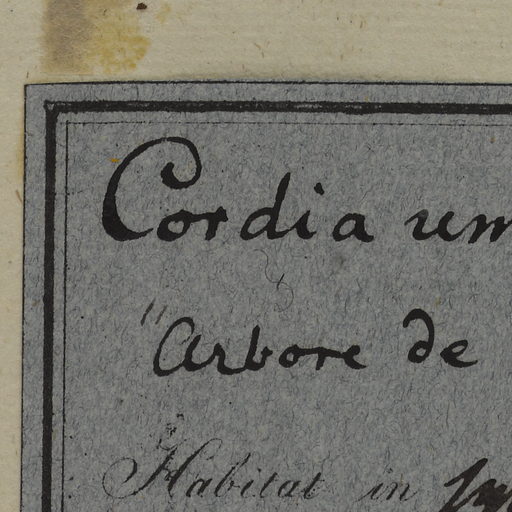 Cordia um
"Arbore de
Habitat in